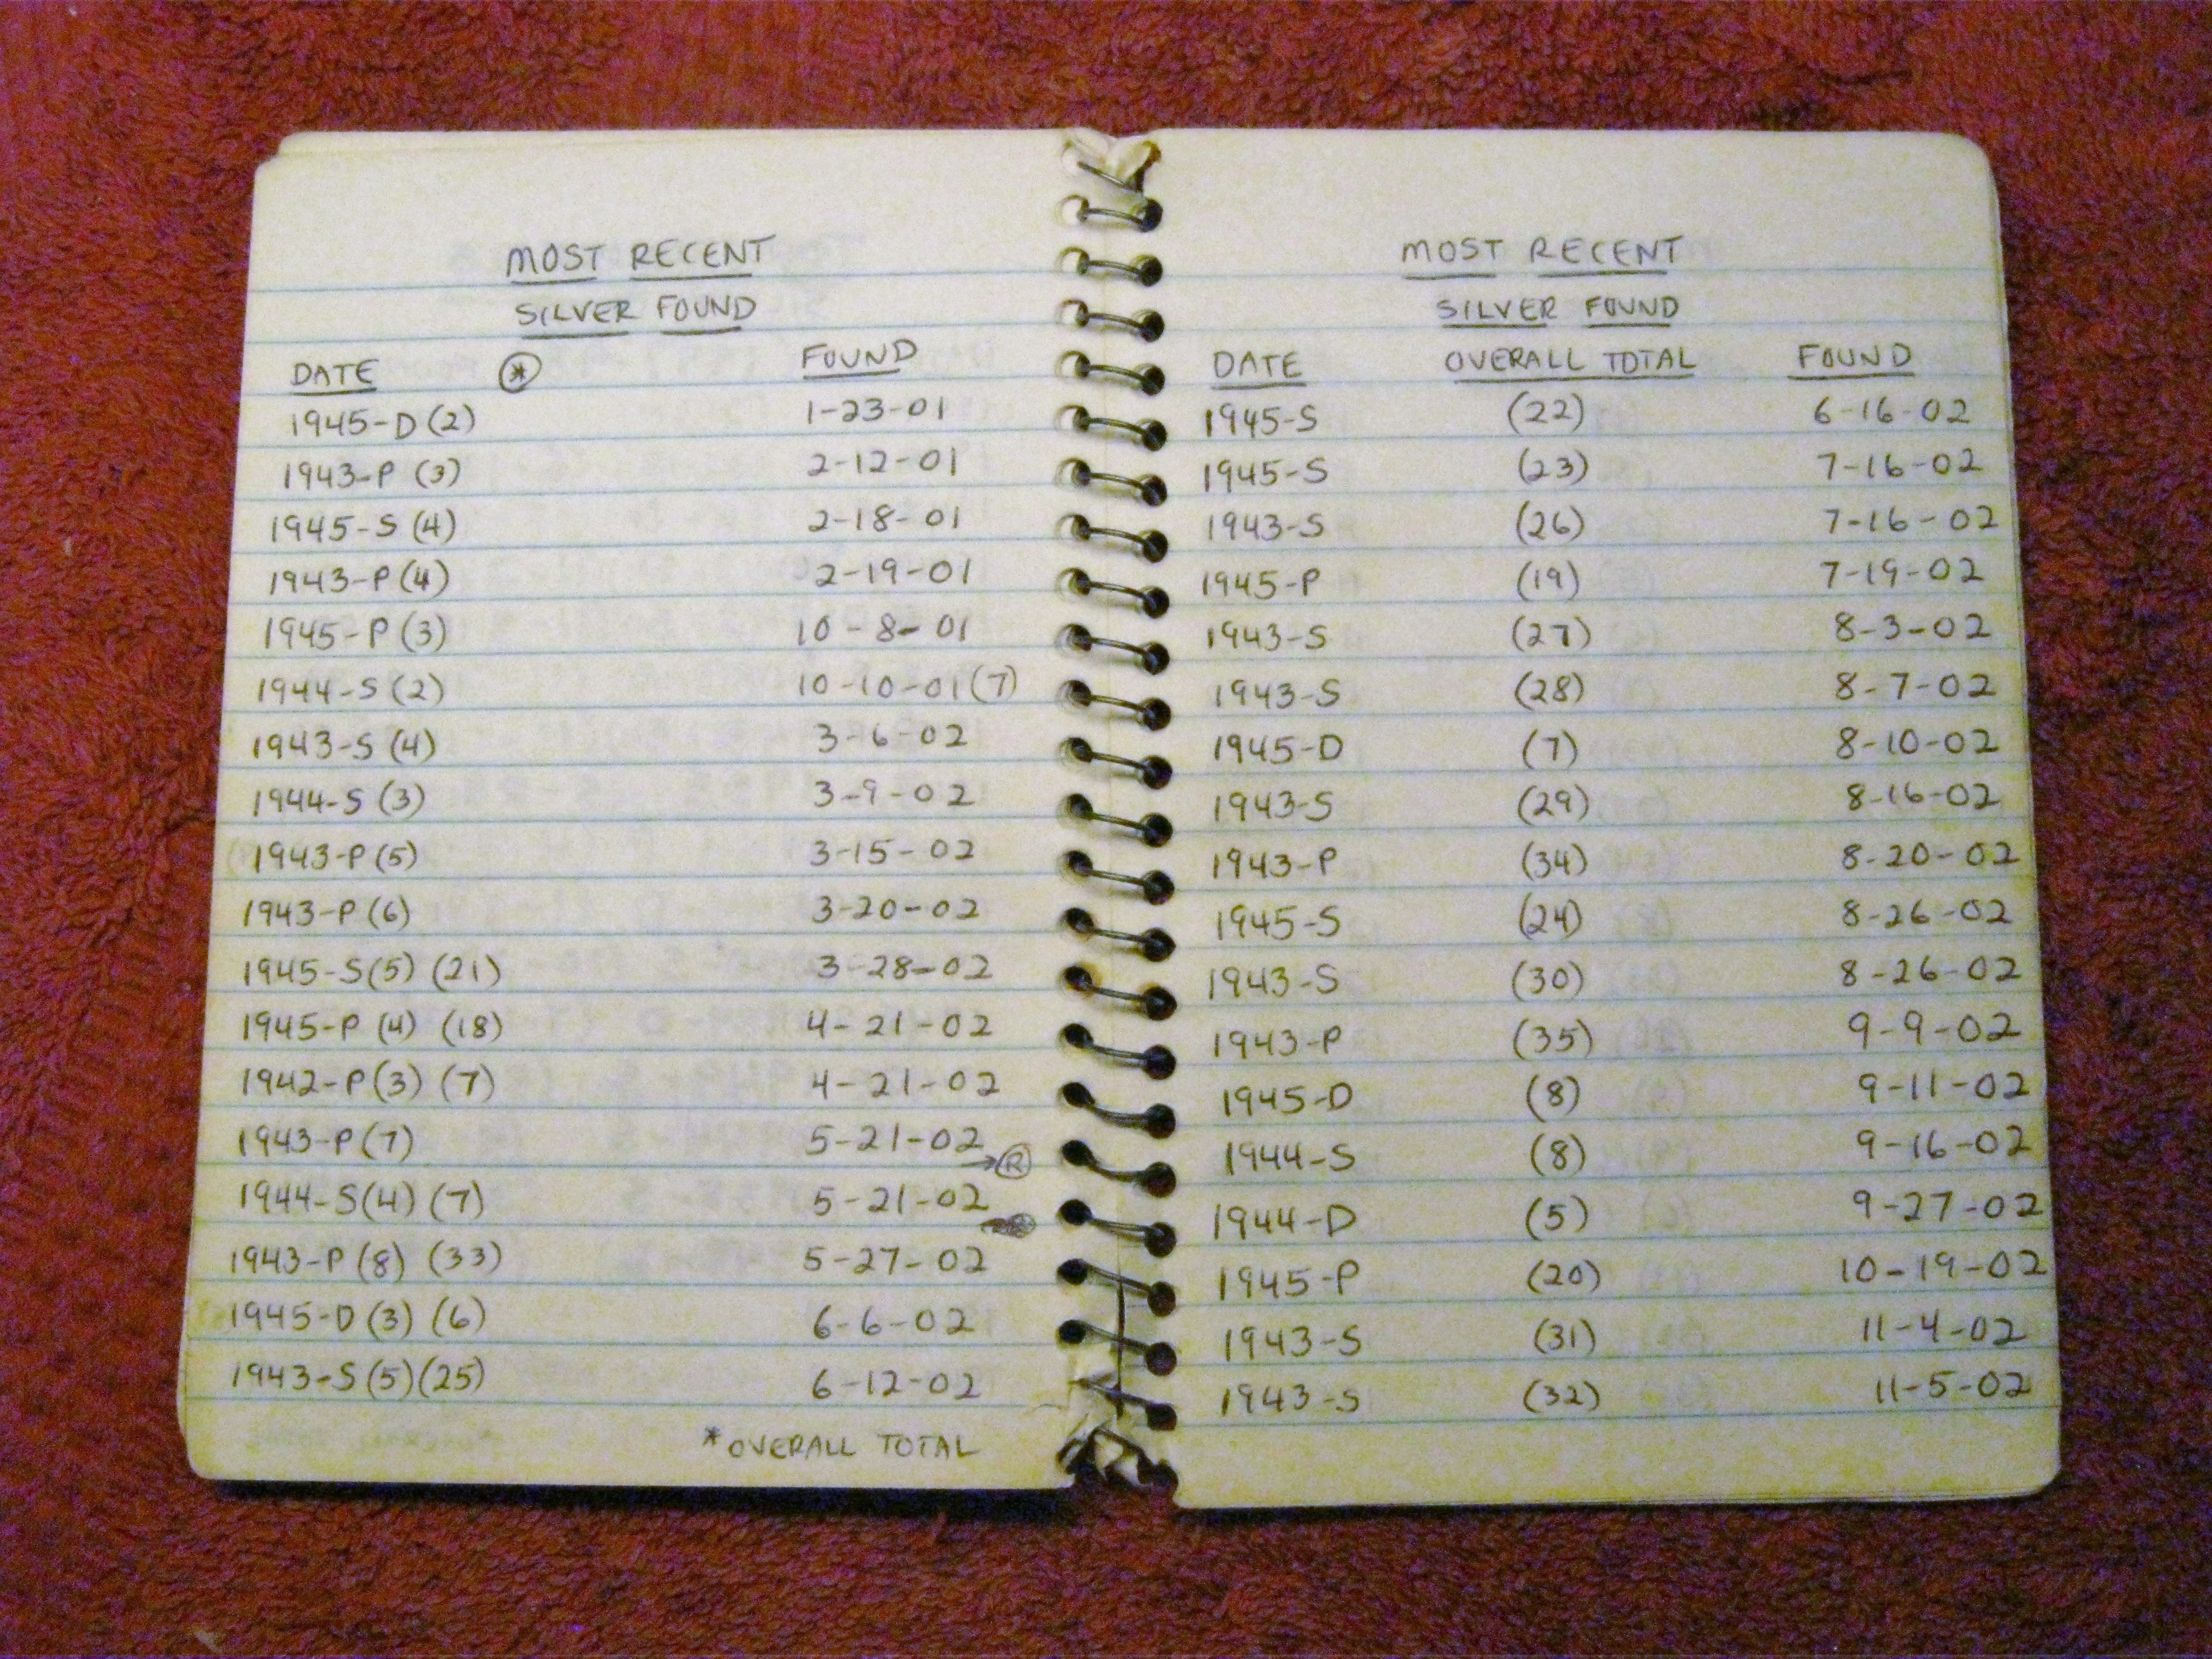 MOST RECENT
SILVER FOUND
DATE * FOUND
1945-D (2) 1-23-01
1943-P (3) 2-12-01
1945-S (4) 2-18-01
1943-P (4) 2-19-01
1945-P (3) 10-8-01
1944-S (2) 10-10-01 (7)
1943-S (4) 3-6-02
1944-S (3) 3-9-02
1943-P (5) 3-15-02
1943-P (6) 3-20-02
1945-S (5) (21) 3-28-02
1945-P (4) (18) 4-21-02
1942-P (3) (7) 4-21-02
1943-P (7) 5-21-02
→ R
1944-S (4) (7) 5-21-02
1943-P (8) (33) 5-27-02
1945-D (3) (6) 6-6-02
1943-S (5) (25) 6-12-02
*OVERALL TOTAL
MOST RECENT
SILVER FOUND
DATE OVERALL TOTAL FOUND
1945-S (22) 6-16-02
1945-S (23) 7-16-02
1943-S (26) 7-16-02
1945-P (19) 7-19-02
1943-S (27) 8-3-02
1943-S (28) 8-7-02
1945-D (7) 8-10-02
1943-S (29) 8-16-02
1943-P (34) 8-20-02
1945-S (24) 8-26-02
1943-S (30) 8-26-02
1943-P (35) 9-9-02
1945-D (8) 9-11-02
1944-S (8) 9-16-02
1944-D (5) 9-27-02
1945-P (20) 10-19-02
1943-S (31) 11-4-02
1943-S (32) 11-5-02